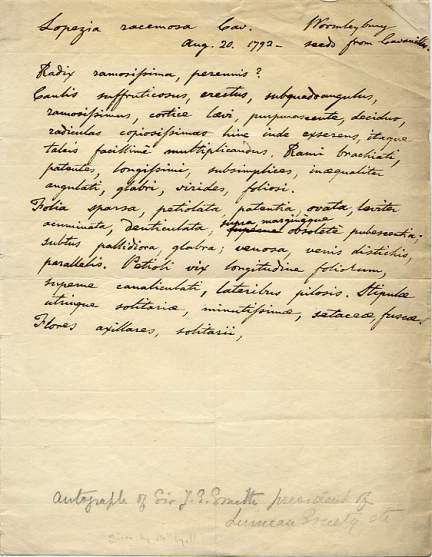 Lopezia racemosa Cav. Wormleybury
Aug. 20. 1792 - seeds from Cavanilles.
Radix ramosissima, perennis?
Caulis suffruticosus, erectus, subquadrangulus,
ramosissimus, cortice laevi, purpurascente, deciduo,
radiculas copiosissimas hinc inde exserens, itaque
taleis facillime multiplicandus. Rami brachiati,
patentes, longissimi, subsimplices, inaequaliter
angulati, glabri, virides, foliosi.
Folia sparsa, petiolata, patentia, ovata, leviter
acuminata, denticulata, supra margineque obsolete pubescentia;
subtus pallidiora, glabra; venosa, venis distichis,
parallelis. Petioli vix longitudine foliorum,
superne canaliculati, lateribus pilosis. Stipulae
utrinque solitariae, minutissimae, setaceae, fuscae.
Flores axillares, solitarii,
Autograph of Sir J. E. Smith president of
Linnean Society etc